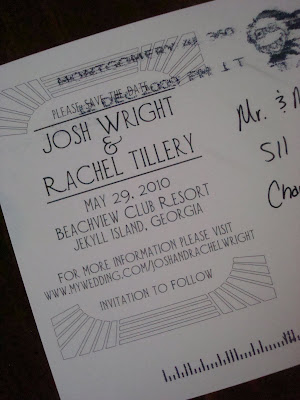 MONTGOMERY AL 360
DEC 2009 PM 1 T
PLEASE SAVE THE DATE
JOSH WRIGHT
&
RACHEL TILLERY
MAY 29, 2010
BEACHVIEW CLUB RESORT
JEKYLL ISLAND, GEORGIA
FOR MORE INFORMATION PLEASE VISIT
WWW.MYWEDDING.COM/JOSHANDRACHELWRIGHT
INVITATION TO FOLLOW
Mr. &
511
Cha